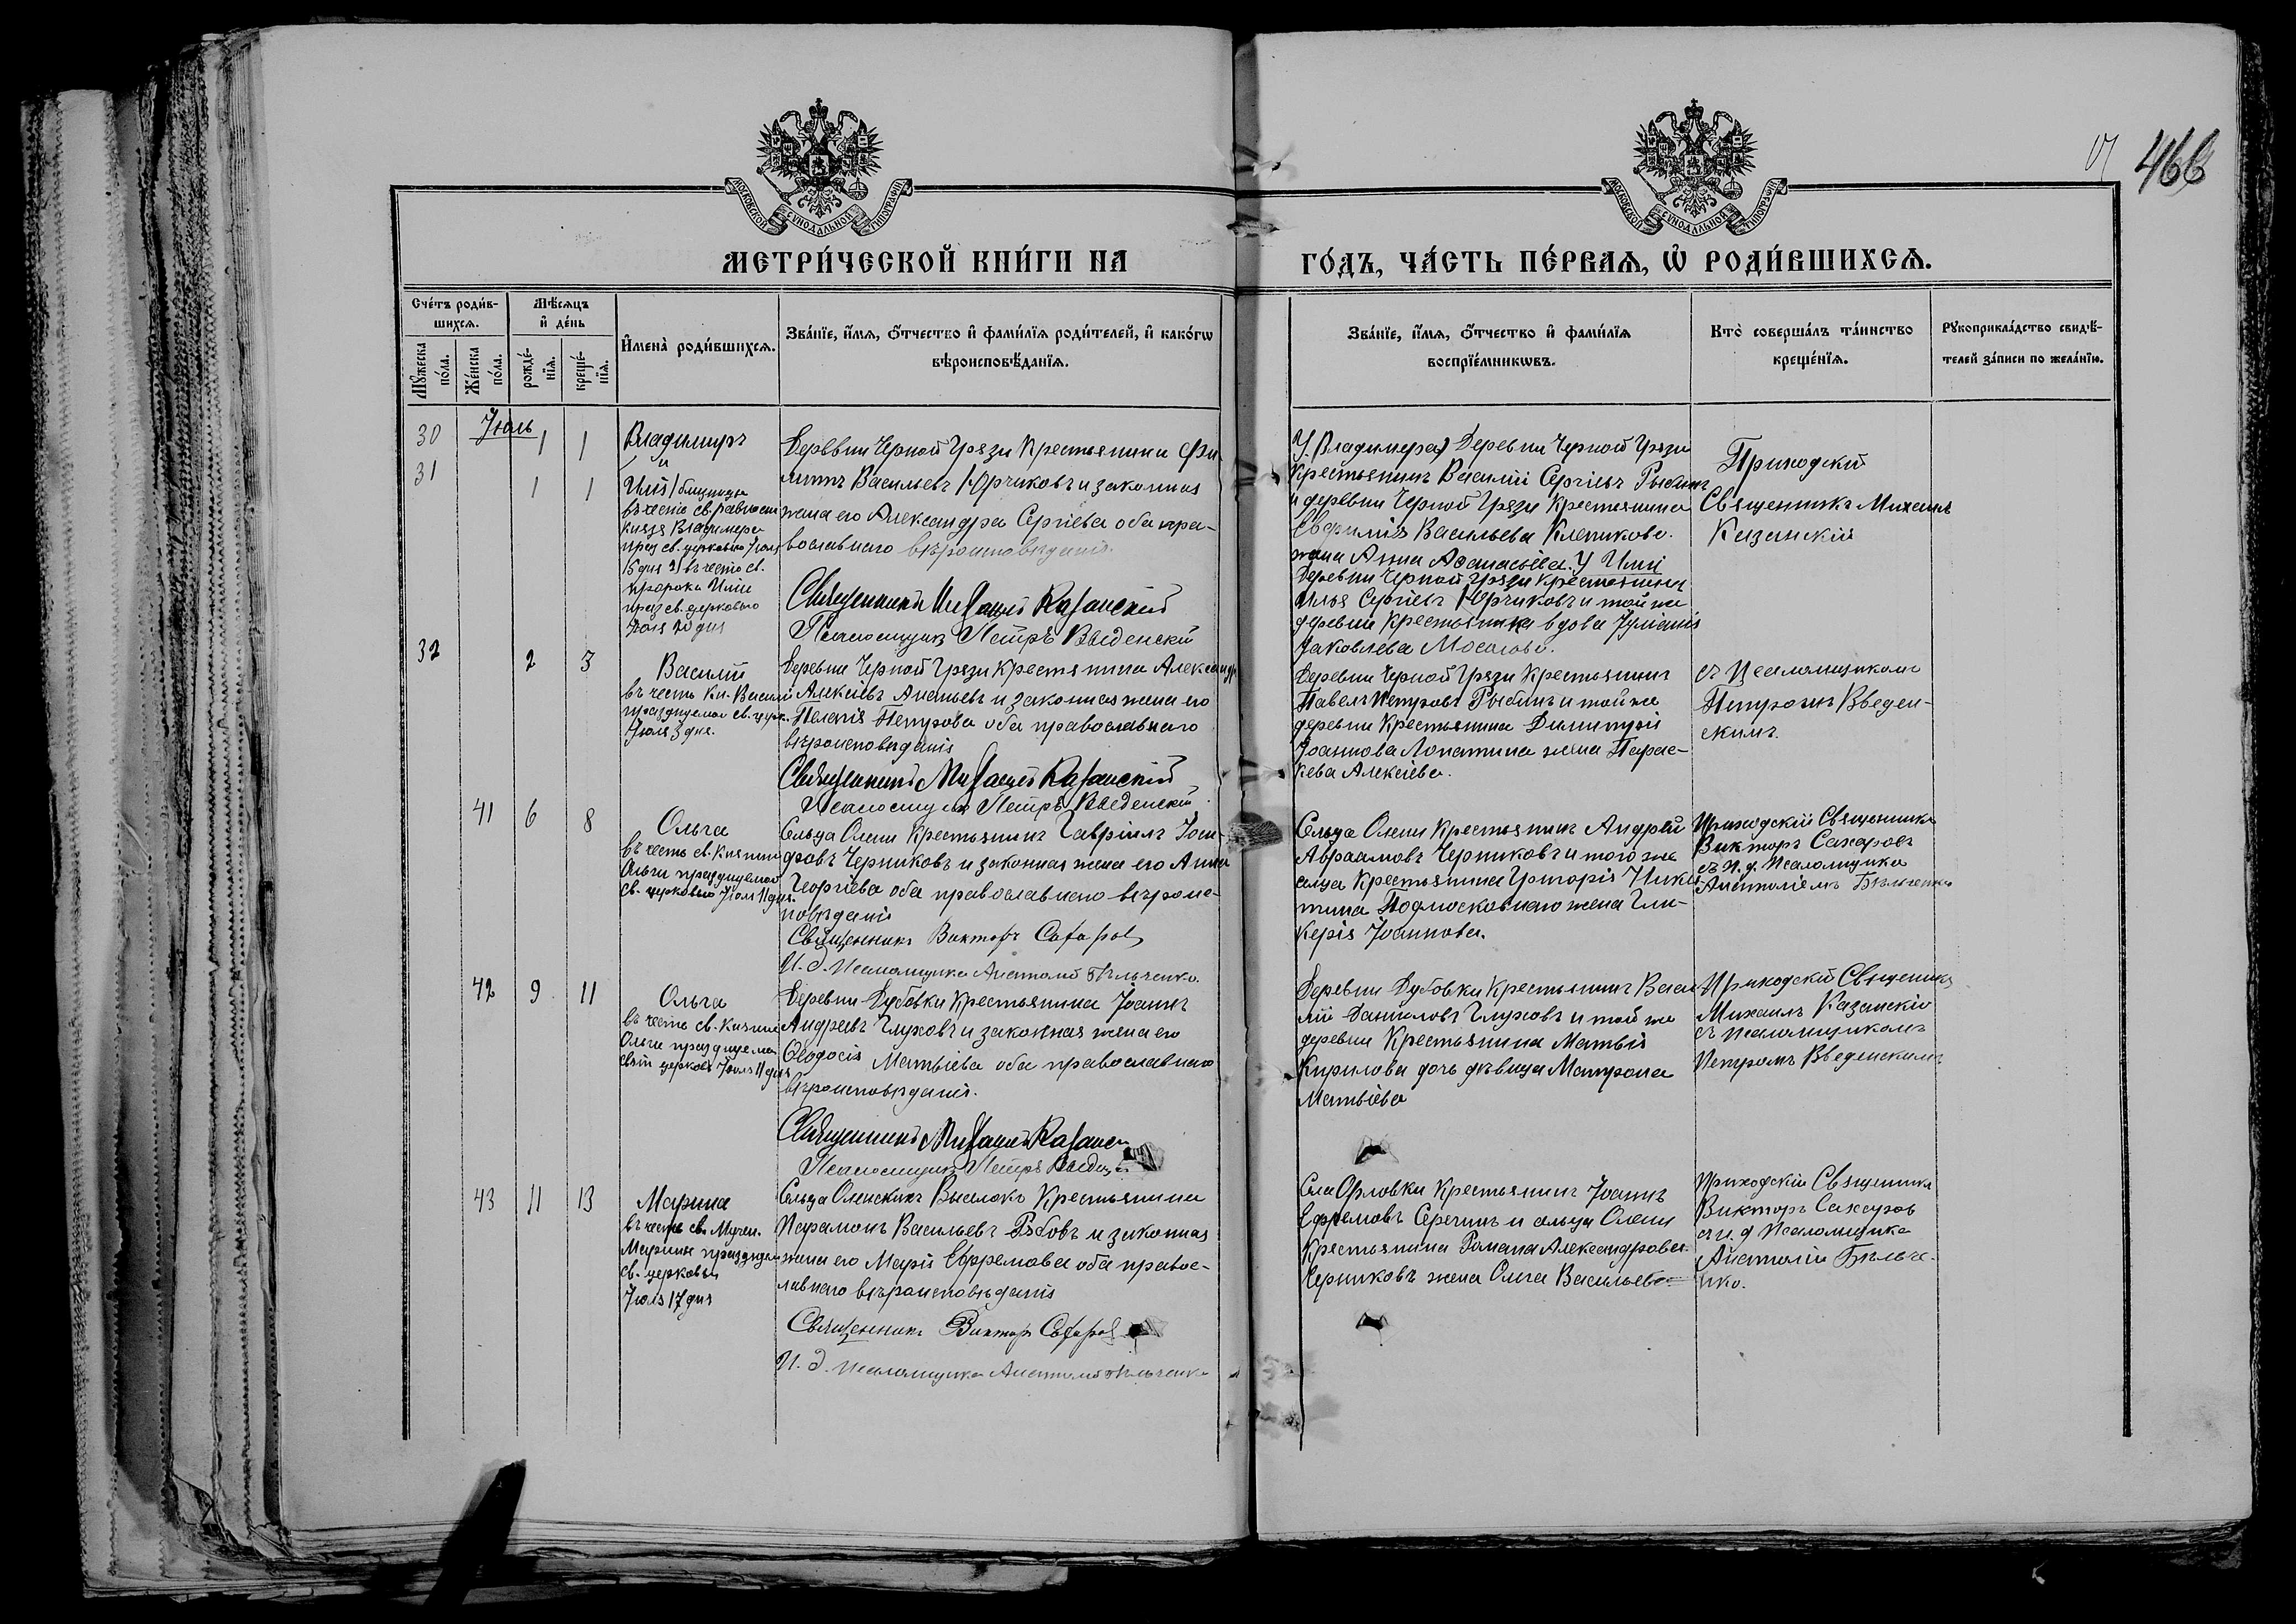 466
МОСКОВСКОЙ СУНОДАЛЬНОЙ ТИПОГРАФІИ
МОСКОВСКОЙ СУНОДАЛЬНОЙ ТИПОГРАФІИ
МЕТРИ́ЧЕСКОЙ КНИ́ГИ НА
ГО́ДЪ, ЧА́СТЬ ПЕ́РВАѦ, Ѡ҆ РОДИ́ВШИХСѦ.
Сче́тъ роди́в-
шихсѧ.
Мѣ́сѧцъ
и҆ де́нь
Мꙋ́жеска
по́ла.
Же́нска
по́ла.
рожде́-
нїѧ.
креще́-
нїѧ.
И҆мена̀ роди́вшихсѧ.
Зва́нїе, и҆́мѧ, ѻ҆́тчество и҆ фами́лїѧ роди́телей, и҆ како́гѡ
вѣроисповѣ́данїѧ.
Зва́нїе, и҆́мѧ, ѻ҆́тчество и҆ фами́лїѧ
воспрїе́мникѡвъ.
Кто̀ соверша́лъ та́инство
креще́нїѧ.
Рꙋкоприкла́дство свидѣ́-
телей за́писи по жела́нїю.
Іюль
30
1 1
31
1 1
Владимиръ
и
Илія близнецы
въ честь св. равноап
князя Владимера
праз св. церковью Іюля
15 дня 2) въ честь св.
пророка Иліи
праз св. церковью
Іюля 20 дня
Деревни Черной Грязи Крестьянинъ Фи
липпъ Васильевъ Юрчиковъ и законная
жена его Александра Сергіева оба пра-
вославнаго вѣроисповѣданія.
Священникъ Михаилъ Казанскій
Псаломщикъ Петръ Введенскій
У Владимера) Деревни Черной Грязи
Крестьянинъ Василій Сергіевъ Рыбинъ
и деревни Черной Грязи Крестьянина
Васильева Клепикова
жена Анна Афанасіева. У Иліи
Деревни Черной Грязи крестьянинъ
Илья Сергіевъ Юрчиковъ и той же
деревни Крестьянка вдова Іуліанія
Іаковлева Мосалова.
Приходскій
Священникъ Михаилъ
Казанскій
32
2 3
Василій
въ честь Кн. Василія
празднуемаго св. церк.
Іюля 3 дня.
Деревни Черной Грязи Крестьянинъ Александръ
Алексіевъ Ананьевъ и законная жена его
Пелагія Петрова оба православнаго
вѣроисповѣданія
Священникъ Михаилъ Казанскій
Псаломщикъ Петръ Введенскій
Деревни Черной Грязи Крестьянинъ
Павелъ Петровъ Рыбинъ и той же
деревни Крестьянина Димитрія
Іоаннова Лопатина жена Парас-
кева Алексіева.
съ Псаломщикомъ
Петромъ Введен-
скимъ.
41 6 8
Ольга
въ честь св. Княгини
Ольги празднуемой
св. церковью Іюля 11 дня.
Сельца Олени Крестьянинъ Гавріилъ
Черниковъ и законная жена его Анна
Георгіева оба православнаго вѣроис-
повѣданія
Священникъ Викторъ Сахаровъ
И. д. Псаломщика Анатолій Бѣльченко.
Сельца Олени Крестьянинъ Андрей
Авраамовъ Черниковъ и того же
сельца Крестьянина Григорія Ники-
тина Подмосковнаго жена Гли-
керія Іоаннова.
Приходскій Священникъ
Викторъ Сахаровъ
съ и. д. Псаломщика
Анатоліемъ Бѣльченко
42 9 11
Ольга
въ честь св. Княгини
Ольги празднуемой
свят церков Іюля 11 дня
Деревни Дубовки Крестьянинъ Іоаннъ
Андреевъ Глуховъ и законная жена его
Ѳеодосія Матвіева оба православнаго
вѣроисповѣданія.
Священникъ Михаилъ Казанс
Псаломщикъ Петръ Введенс
Деревни Дубовки Крестьянинъ Васи
лій Даниловъ Глуховъ и той же
деревни Крестьянина Матвія
Кирилова дочь дѣвица Матрона
Матвіева
Приходскій Священникъ
Михаилъ Казанскій
съ псаломщикомъ
Петромъ Введенскимъ
43 11 13
Марина
въ честь св. Мучен.
Марины празднуем
св. церковью
Іюля 17 дня
Сельца Оленскихъ Выселокъ Крестьянинъ
Парамонъ Васильевъ Рябовъ и законная
жена его Марія Ефремова оба правос-
лавнаго вѣроисповѣданія
Священникъ Викторъ Сахаровъ
И. д. псаломщика Анатолій Бѣльченко
Села Орловки Крестьянинъ Іоаннъ
Ефремовъ Серегинъ и сельца Олени
Крестьянина Романа Александрова
Черниковъ жена Ольга Васильева
Приходскій Священникъ
Викторъ Сахаровъ
и. д Псаломщика
Анатолій Бѣльче-
нко.